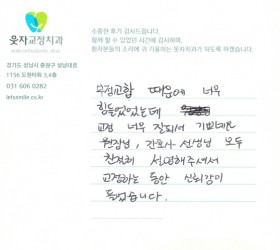 웃자교정치과
경기도 성남시 중원구 성남대로
1156 도원타워 3,4층
031 606 0282
letssmile.co.kr
소중한 후기 감사드립니다.
함께 할 수 있었던 시간에 감사하며,
환자분들의 소리에 귀 기울이는 웃자치과가 되도록 하겠습니다.
때문에 너무
힘들었었는데
교정 너무 잘되서 기쁘네요
원장님, 간호사 선생님 모두
친절히 설명해주셔서
교정하는 동안 신뢰감이
들었습니다.